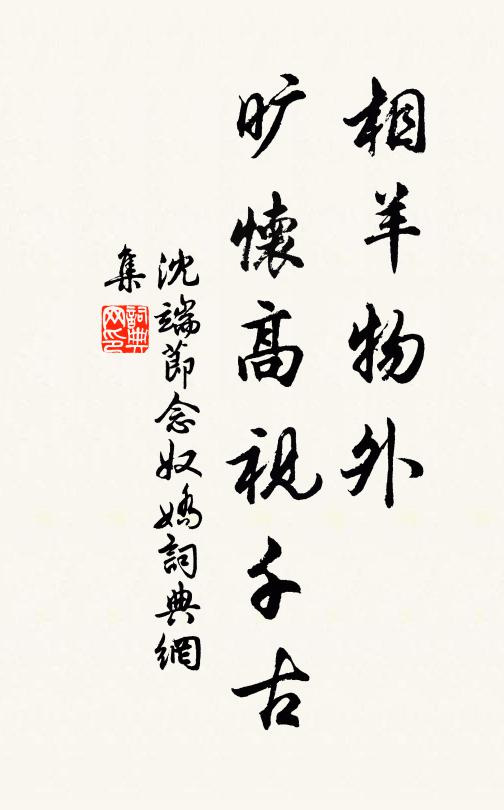 相羊物外
旷懷高視千古
沈端節念奴嬌詞典網
集
詞典
网印